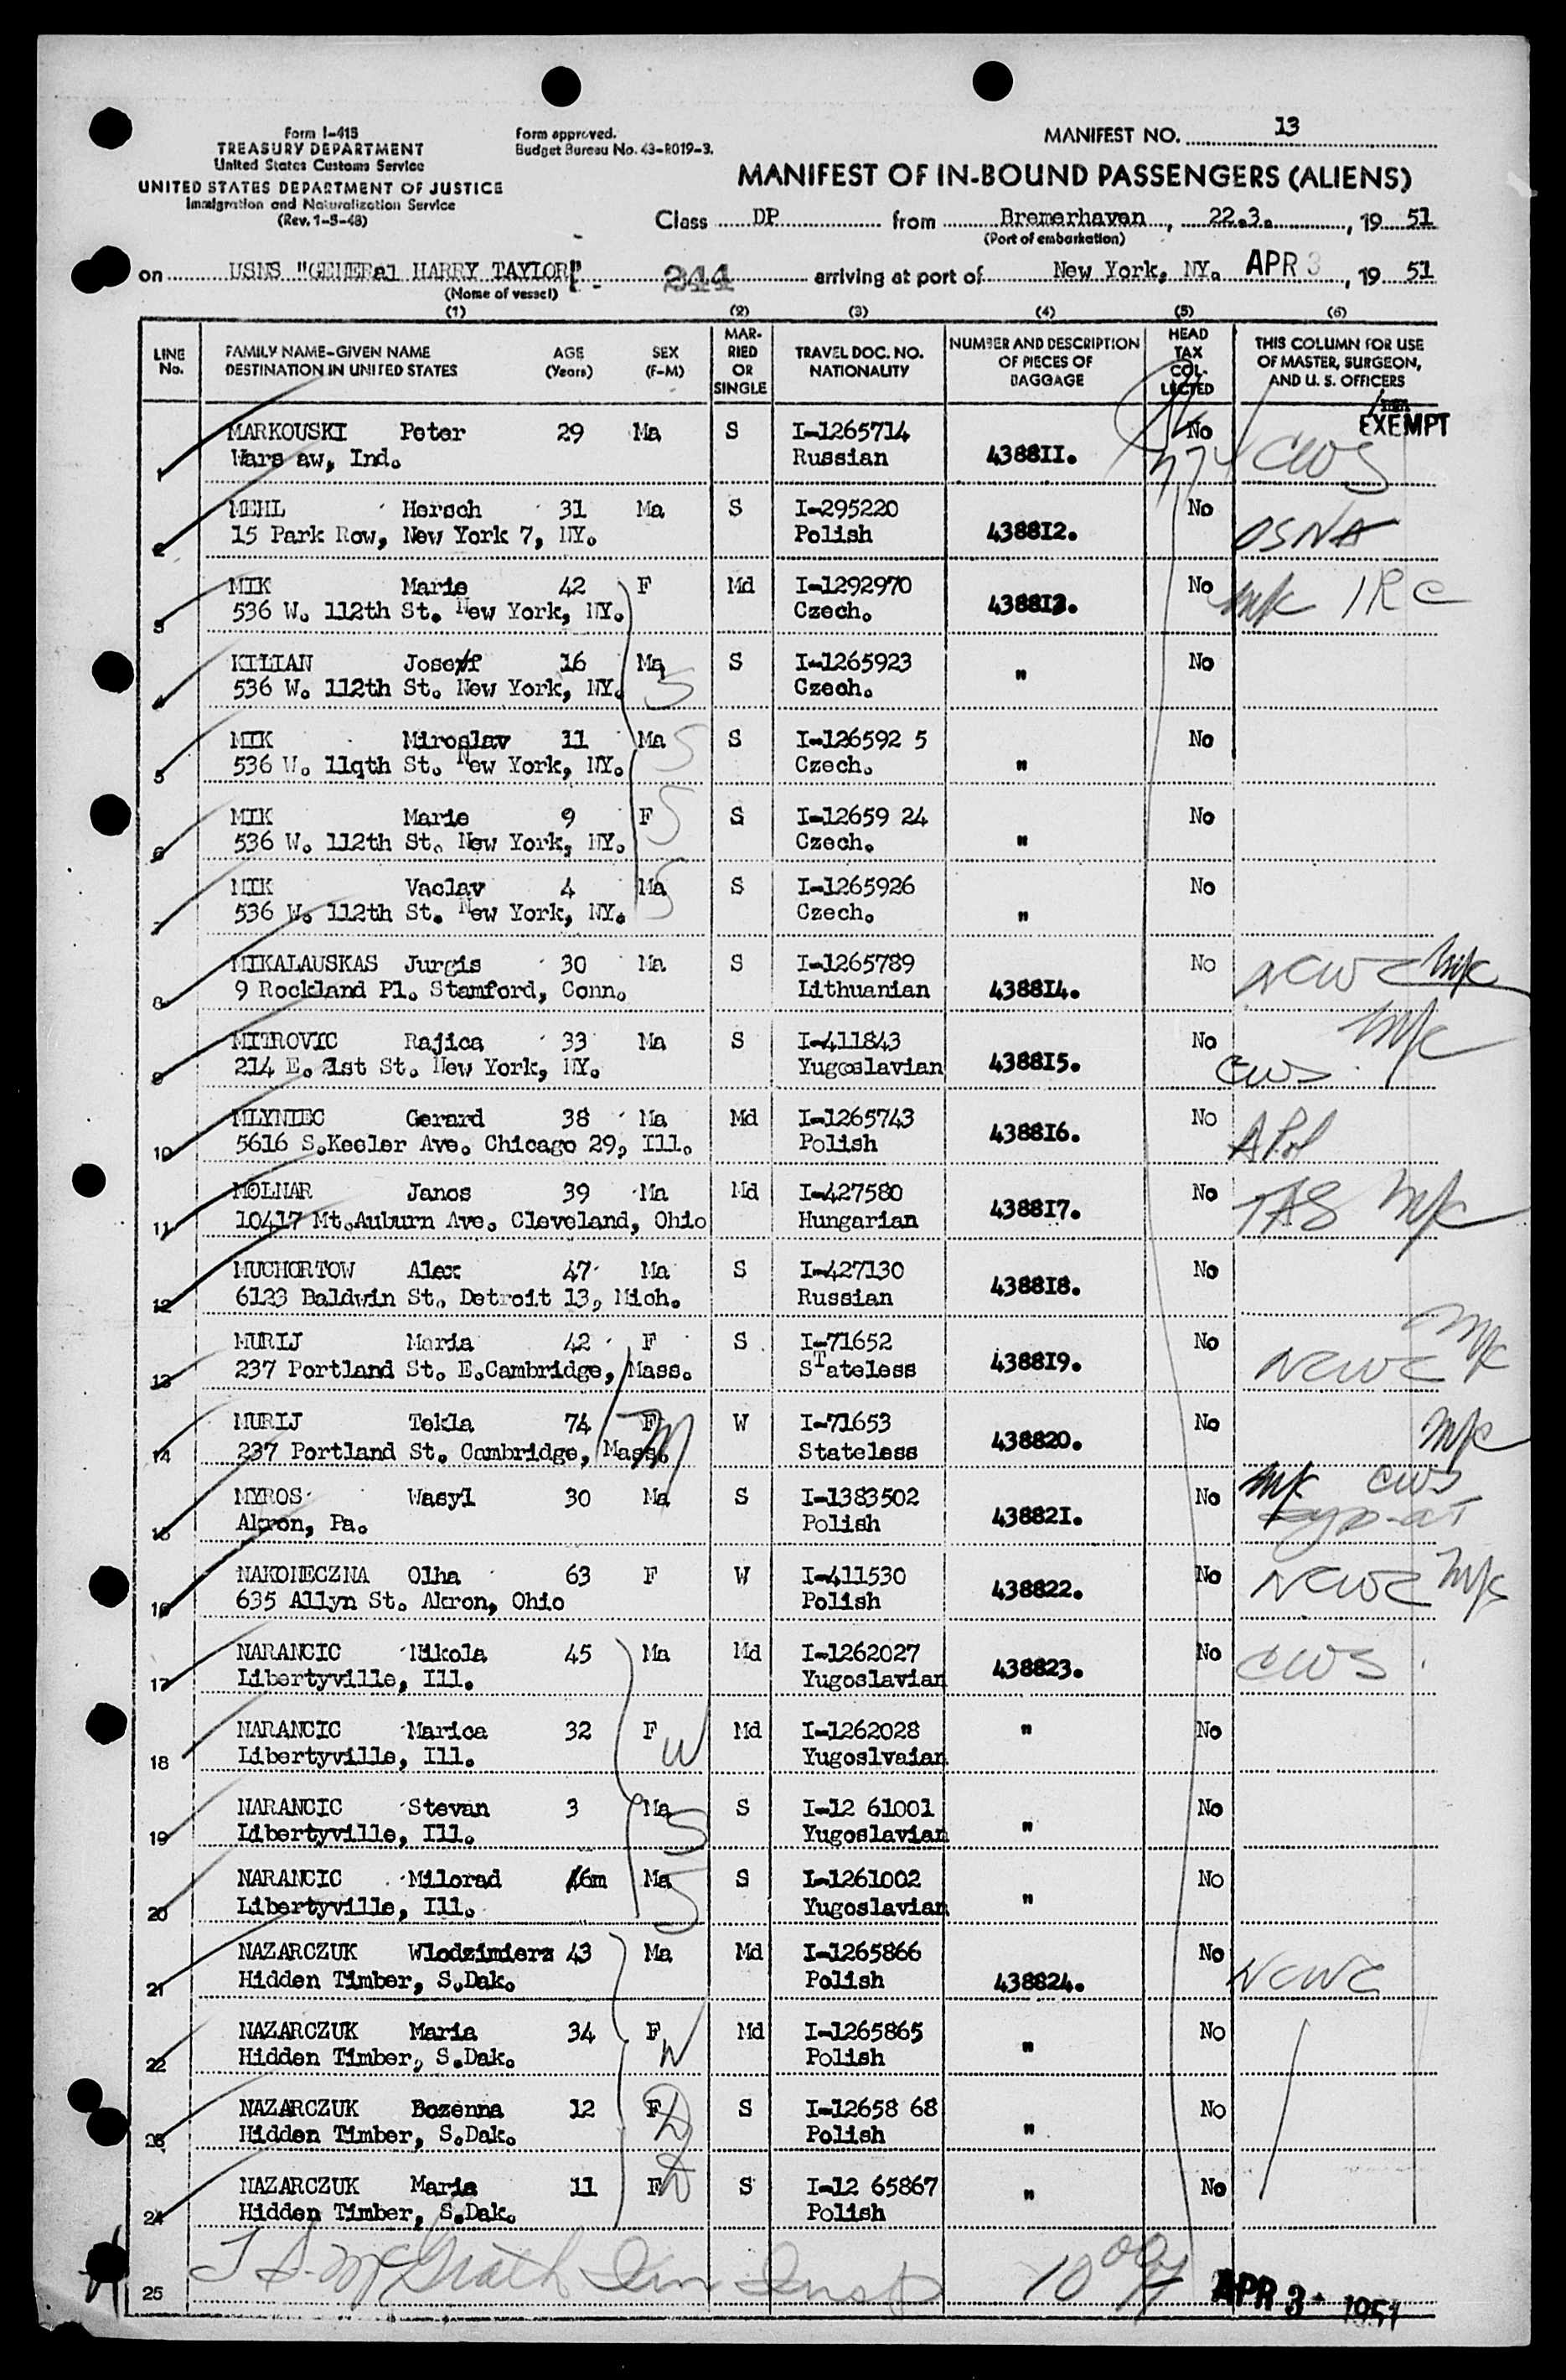 Form I-415
TREASURY DEPARTMENT
United States Customs Service
UNITED STATES DEPARTMENT OF JUSTICE
Immigration and Naturalization Service
(Rev. 1-5-48)
Form approved.
Budget Bureau No. 43-R019-3.
MANIFEST NO. 13
MANIFEST OF IN-BOUND PASSENGERS (ALIENS)
Class DP from Bremerhaven, 22.3., 19 51
(Port of embarkation)
on USNS "GENERal HARRY TAYLOR" 244 arriving at port of New York, NY. APR 3, 19 51
(Name of vessel)
(1) (2) (3) (4) (5) (6)
LINE No. FAMILY NAME-GIVEN NAME DESTINATION IN UNITED STATES AGE (Years) SEX (F-M) MARRIED OR SINGLE TRAVEL DOC. NO. NATIONALITY NUMBER AND DESCRIPTION OF PIECES OF BAGGAGE HEAD TAX COLLECTED THIS COLUMN FOR USE OF MASTER, SURGEON, AND U. S. OFFICERS
EXEMPT
MARKOUSKI Peter 29 Ma S I-1265714 No
1 Wars aw, Ind. Russian 438811. CWS
MEHL Hersch 31 Ma S I-295220 No
2 15 Park Row, New York 7, NY. Polish 438812. OSNA
MIK Marie 42 F Md I-1292970 No IRC
3 536 W. 112th St. New York, NY. Czech. 438813.
KILIAN Josef 16 Ma S I-1265923 No
4 536 W. 112th St. New York, NY. S Czech. "
MIK Miroslav 11 Ma S S I-126592 5 No
5 536 W. 11qth St. New York, NY. Czech. "
MIK Marie 9 F S S I-12659 24 No
6 536 W. 112th St. New York, NY. Czech. "
MIK Vaclav 4 Ma S S I-1265926 No
7 536 W. 112th St. New York, NY. Czech. "
MIKALAUSKAS Jurgis 30 Ma S I-1265789 No NCWC
8 9 Rockland Pl. Stamford, Conn. Lithuanian 438814.
MITROVIC Rajica 33 Ma S I-411843 No
9 214 E. 21st St. New York, NY. Yugoslavian 438815. CWS
MLYNIEC Gerard 38 Ma Md I-1265743 No
10 5616 S.Keeler Ave. Chicago 29, Ill. Polish 438816.
MOLNAR Janos 39 Ma Md I-427580 No
11 10417 Mt.Auburn Ave. Cleveland, Ohio Hungarian 438817. TAS
MUCHORTOW Alex 47 Ma S I-427130 No
12 6123 Baldwin St. Detroit 13, Mich. Russian 438818.
MURIJ Maria 42 F S I-71652 No
13 237 Portland St. E.Cambridge, Mass. Stateless 438819. NCWC
MURIJ Tekla 74 F M W I-71653 No
14 237 Portland St. Cambridge, Mass. Stateless 438820.
MYROS Wasyl 30 Ma S I-1383502 No CWS
15 Akron, Pa. Polish 438821.
NAKONECZNA Olha 63 F W I-411530 No NCWC
16 635 Allyn St. Akron, Ohio Polish 438822.
NARANCIC Nikola 45 Ma Md I-1262027 No CWS
17 Libertyville, Ill. Yugoslavian 438823.
NARANCIC Marica 32 F W Md I-1262028 " No
18 Libertyville, Ill. Yugoslvaian
NARANCIC Stevan 3 Ma S S I-12 61001 No
19 Libertyville, Ill. Yugoslavian "
NARANCIC Milorad 6m Ma S S I-1261002 No
20 Libertyville, Ill. Yugoslavian "
NAZARCZUK Wlodzimierz 43 Ma Md I-1265866 No NCWC
21 Hidden Timber, S.Dak. Polish 438824.
NAZARCZUK Maria 34 F W Md I-1265865 No
22 Hidden Timber, S.Dak. Polish "
NAZARCZUK Bozenna 12 F D S I-12658 68 No
23 Hidden Timber, S.Dak. Polish "
NAZARCZUK Maria 11 F D S I-12 65867 No
24 Hidden Timber, S.Dak. Polish "
25 McGrath Im Insp 10 APR 3 - 1951